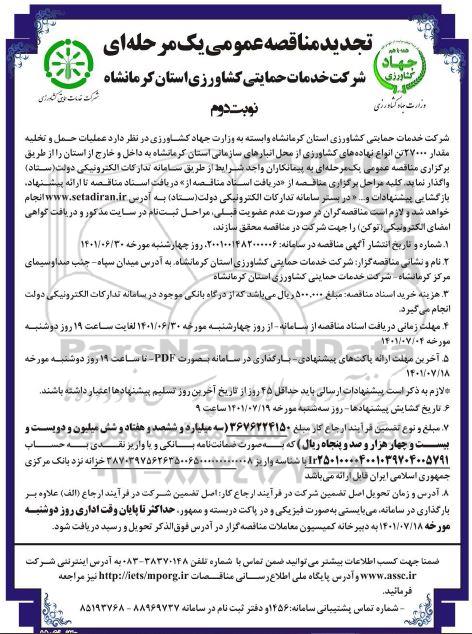 تجدید مناقصه عمومی یک مرحله‌ای
شرکت خدمات حمایتی کشاورزی استان کرمانشاه
نوبت دوم
جهاد کشاورزی
وزارت جهاد کشاورزی
شرکت خدمات حمایتی کشاورزی
شرکت خدمات حمایتی کشاورزی استان کرمانشاه وابسته به وزارت جهاد کشاورزی در نظر دارد عملیات حمل و تخلیه
مقدار ۲۷۰۰۰تن انواع نهاده‌های کشاورزی از محل انبارهای سازمانی استان کرمانشاه به داخل و خارج از استان را از طریق
برگزاری مناقصه عمومی یک مرحله‌ای به پیمانکاران واجد شرایط از طریق سامانه تدارکات الکترونیکی دولت(ستاد)
واگذار نماید. کلیه مراحل برگزاری مناقصه از «دریافت اسناد مناقصه از» دریافت اسناد مناقصه تا ارائه پیشنهاد،
بازگشایی پیشنهادات و... » در بستر سامانه تدارکات الکترونیکی دولت(ستاد) به آدرس www.setadiran.ir انجام
خواهد شد و لازم است مناقصه‌گران در صورت عدم عضویت قبلی، مراحل ثبت‌نام در سایت مذکور و دریافت گواهی
امضای الکترونیکی(توکن) را جهت شرکت در مناقصه محقق سازند.
۱. شماره و تاریخ انتشار آگهی مناقصه در سامانه: ۲۰۰۱۰۰۱۴۸۲۰۰۰۰۰۶، روز چهارشنبه مورخه ۱۴۰۱/۰۶/۳۰
۲. نام و نشانی مناقصه‌گزار: شرکت خدمات حمایتی کشاورزی استان کرمانشاه، به آدرس میدان سپاه- جنب صداوسیمای
مرکز کرمانشاه - شرکت خدمات حمایتی کشاورزی استان کرمانشاه
۳. هزینه خرید اسناد مناقصه: مبلغ ۵۰۰.۰۰۰ ریال می‌باشد که از درگاه بانکی موجود در سامانه تدارکات الکترونیکی دولت
انجام می‌گیرد.
۴. مهلت زمانی دریافت اسناد مناقصه از سامانه- از روز چهارشنبه مورخه ۱۴۰۱/۰۶/۳۰ لغایت ساعت ۱۹ روز دوشنبه
مورخه ۱۴۰۱/۰۷/۰۴
۵. آخرین مهلت ارائه پاکت‌های پیشنهادی- بارگذاری در سامانه بصورت PDF- تا ساعت ۱۹ روز دوشنبه مورخه
۱۴۰۱/۰۷/۱۸
*لازم به ذکر است پیشنهادات ارسالی باید حداقل ۴۵ روز از تاریخ آخرین روز تسلیم پیشنهادها اعتبار داشته باشند.
۶. تاریخ گشایش پیشنهادها- روز سه‌شنبه مورخه ۱۴۰۱/۰۷/۱۹ ساعت ۹
۷. مبلغ و نوع تضمین فرآیند ارجاع کار مبلغ ۳۶۷۶۲۲۴۱۵۰ (سه میلیارد و ششصد و هفتاد و شش میلیون و دویست و
بیست و چهار هزار و صد و پنجاه ریال) که به‌صورت ضمانت‌نامه بانکی و یا واریز نقدی به حساب
خزانه نزد بانک مرکزی
جمهوری اسلامی ایران قابل ارائه می‌باشد
۸. آدرس و زمان تحویل اصل تضمین شرکت در فرآیند ارجاع کار: اصل تضمین شرکت در فرآیند ارجاع (الف) علاوه بر
بارگذاری در سامانه، می‌بایستی به‌صورت فیزیکی و در پاکت دربسته و ممهور، حداکثر تا پایان وقت اداری روز دوشنبه
مورخه ۱۴۰۱/۰۷/۱۸ به دبیرخانه کمیسیون معاملات مناقصه‌گزار در آدرس فوق‌الذکر تحویل و رسید دریافت شود.
ضمنا جهت کسب اطلاعات بیشتر می‌توانید ضمن تماس با شماره تلفن ۳۸۳۷۰۱۴۸-۰۸۳ به آدرس اینترنتی شرکت
www.assc.ir و آدرس پایگاه ملی اطلاع‌رسانی مناقصات http://iets/mporg.ir نیز مراجعه
فرمائید.
- شماره تماس پشتیبانی سامانه: ۱۴۵۶و دفتر ثبت نام در سامانه ۸۸۹۶۹۷۳۷ - ۸۵۱۹۳۷۶۸
ParsNamadData